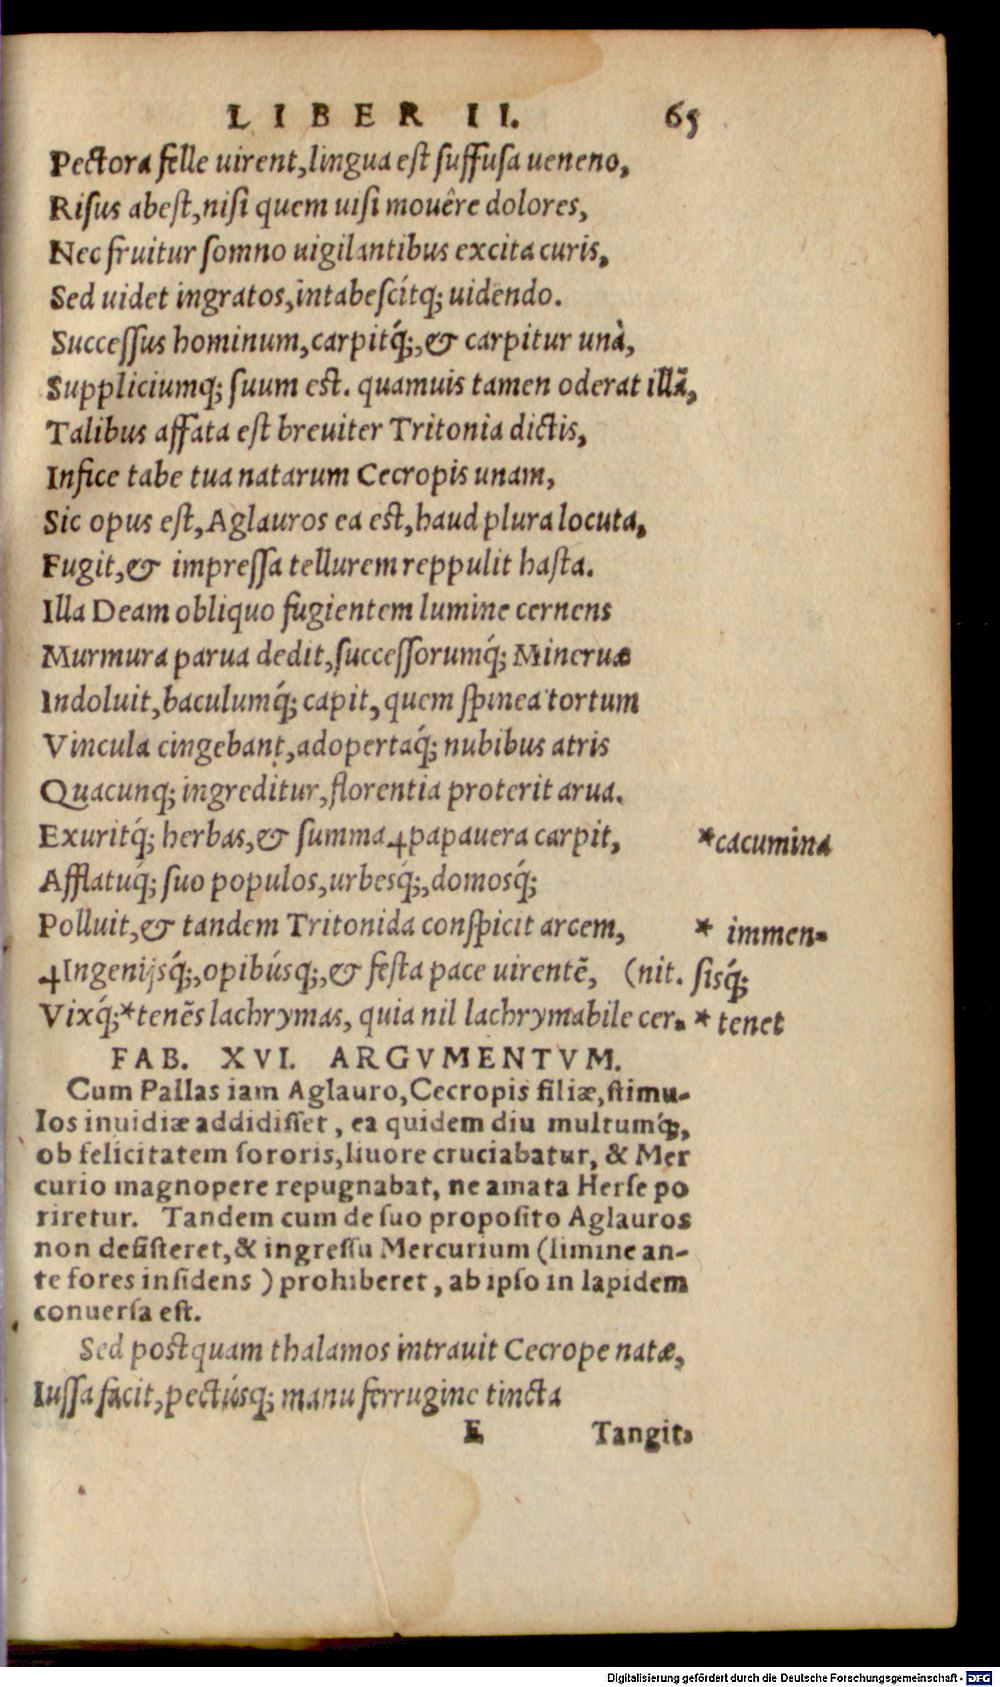 LIBER II. 65
Pectora felle uirent, lingua est suffusa ueneno,
Risus abest, nisi quem uisi mouêre dolores,
Nec fruitur somno uigilantibus excita curis,
Sed uidet ingratos, intabescítq; uidendo.
Successus hominum, carpitq́;, & carpitur unà,
Suppliciumq; suum est. quamuis tamen oderat illã,
Talibus affata est breuiter Tritonia dictis,
Infice tabe tua natarum Cecropis unam,
Sic opus est, Aglauros ea est, haud plura locuta,
Fugit, & impressa tellurem reppulit hasta.
Illa Deam obliquo fugientem lumine cernens
Murmura parua dedit, successorumq́; Mineruæ
Indoluit, baculumq́; capit, quem spinea tortum
Vincula cingebant, adopertaq́; nubibus atris
Quacunq; ingreditur, florentia proterit arua.
Exuritq́; herbas, & summa ⁺papauera carpit, *cacumina
Afflatuq́; suo populos, urbesq́;, domosq́;
Polluit, & tandem Tritonida conspicit arcem, * immen-
⁺Ingenijsq́;, opibúsq;, & festa pace uirentẽ, (nit. sisq́;
Vixq́; *tenẽs lachrymas, quia nil lachrymabile cer- * tenet
FAB. XVI. ARGVMENTVM.
Cum Pallas iam Aglauro, Cecropis filiæ, stimu-
los inuidiæ addidisset, ea quidem diu multumq́;,
ob felicitatem sororis, liuore cruciabatur, & Mer
curio magnopere repugnabat, ne amata Herse po
riretur. Tandem cum de suo proposito Aglauros
non desisteret, & ingressu Mercurium (limine an-
te fores insidens) prohiberet, ab ipso in lapidem
conuersa est.
Sed postquam thalamos intrauit Cecrope natæ,
Iussa facit, pectúsq; manu ferrugine tincta
E Tangit,
Digitalisierung gefördert durch die Deutsche Forschungsgemeinschaft - DFG